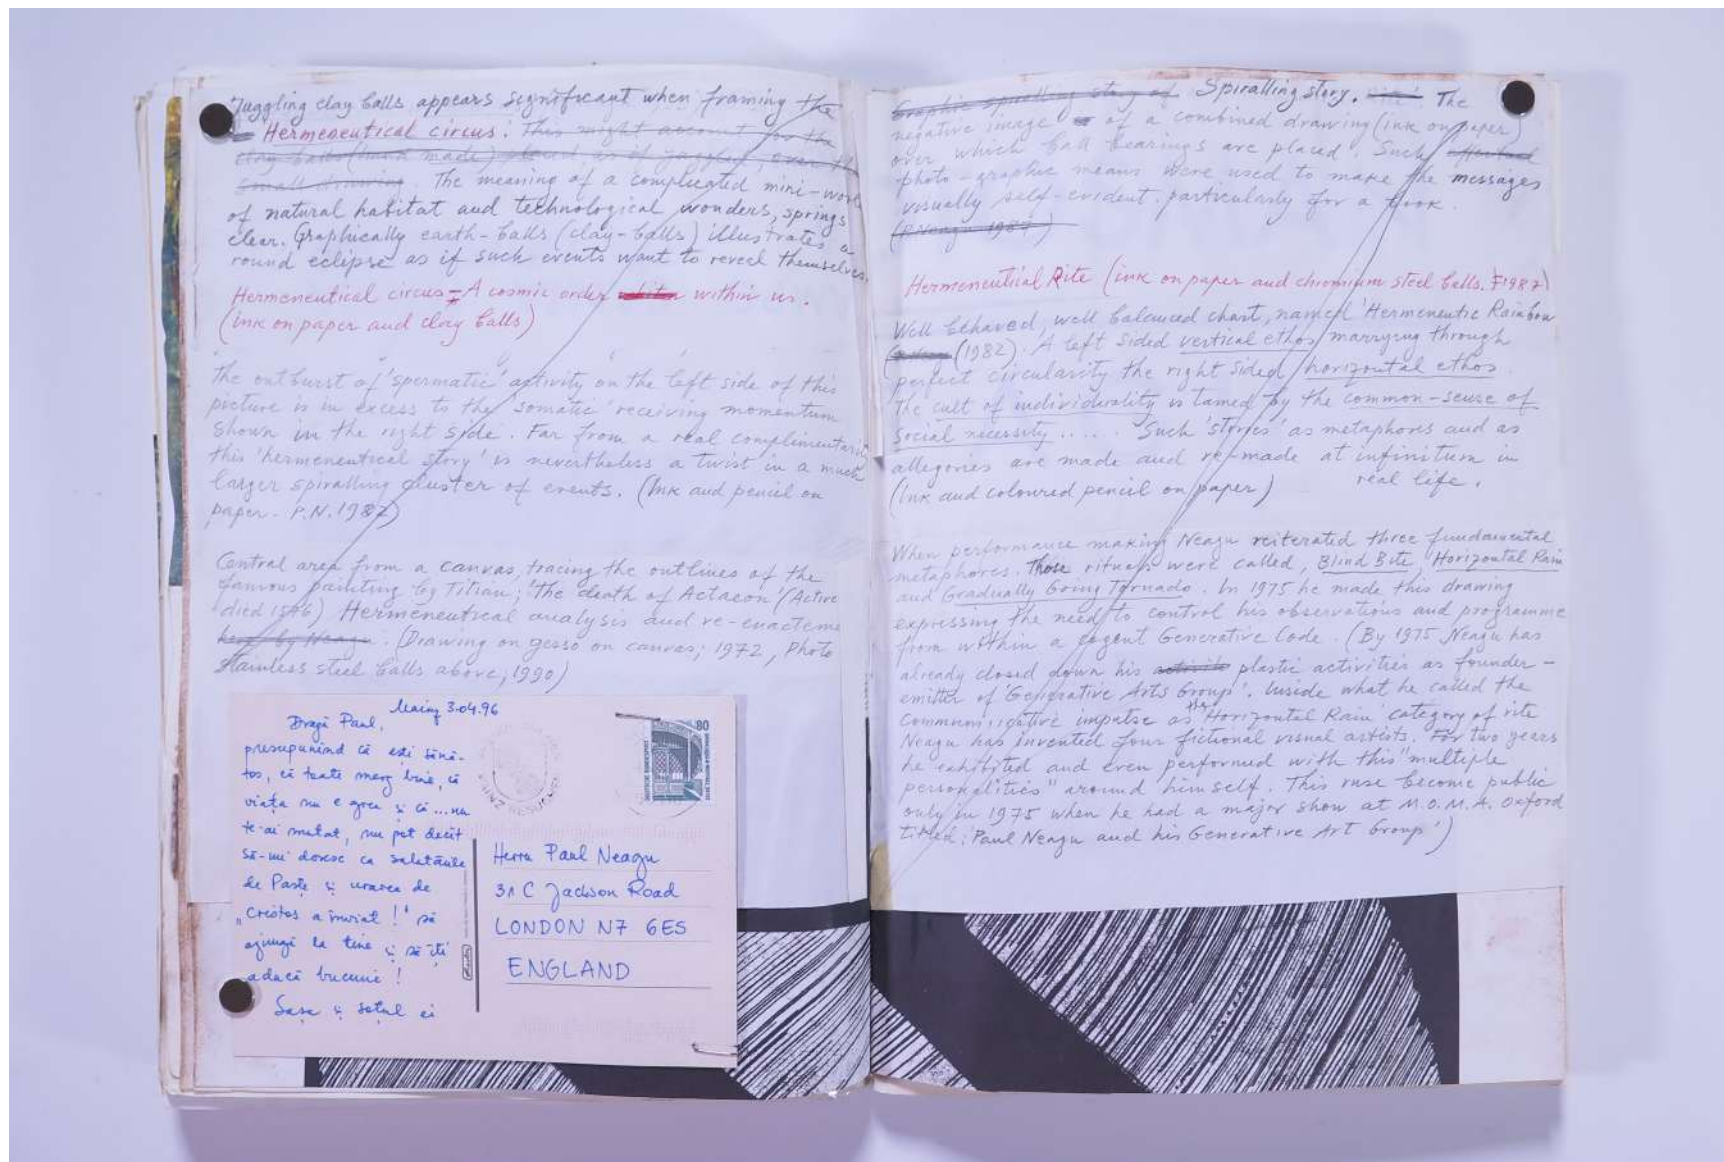 Juggling clay balls appears significant when framing the
Hermeneutical circus: This might account for the
clay balls (hand made) placed as if juggled, over the
small drawing. The meaning of a complicated mini-world
of natural habitat and technological wonders, springs
clear. Graphically earth-balls (clay-balls) illustrates a
round eclipse as if such events want to reveel themselves.
Hermeneutical circus = A cosmic order within us.
(ink on paper and clay balls)
The outburst of 'spermatic' activity on the left side of this
picture is in excess to the 'somatic' receiving momentum
shown in the right side. Far from a real complimentari
this 'hermeneutical story' is nevertheless a twist in a much
larger spiralling cluster of events. (Ink and pencil on
paper - P.N. 1987)
Central area from a canvas, tracing the outlines of the
famous painting by Titian; 'The death of Actaeon' (Active
died 1576) Hermeneutical analysis and re-enacteme
here by Neagu. (Drawing on gesso on canvas; 1972, Photo
stainless steel balls above, 1990)
Mainz 3.04.96
Dragă Paul,
presupunînd că ești sănă-
tos, că toate merg bine, că
viața nu e grea și că...nu
te-ai mutat, nu pot decît
să-mi doresc ca salutările
de Paște și urarea de
"Cristos a înviat!" să
ajungă la tine și să-ți
aducă bucurie!
și soțul ei
80
Herrn Paul Neagu
31 C Jackson Road
LONDON N7 6ES
ENGLAND
Graphic spiralling story of Spiralling story. The
negative image of a combined drawing (ink on paper)
over which ball bearings are placed. Such
photo-graphic means were used to make the messages
visually self-evident. particularly for a book.
(P. Neagu 1987)
Hermeneutical Rite (ink on paper and chromium steel balls. 1987)
Well behaved, well balanced chart, named 'Hermeneutic Rainbow
(1982). A left sided vertical ethos marryng through
perfect circularity the right sided horizontal ethos.
The cult of individurality is tamed by the common-sense of
social necessity ..... Such 'stories' as metaphores and as
allegories are made and re-made at infinitum in
real life.
(Ink and coloured pencil on paper)
When performance making Neagu reiterated three fundamental
metaphores. Those rituals were called, Blind Bite, Horizontal Rain
and Gradually Going Tornado. In 1975 he made this drawing
expressing the need to control his observations and programme
from within a cogent Generative Code. (By 1975 Neagu has
already closed down his plastic activities as founder-
emitter of 'Generative Arts Group'. Inside what he called the
communicative impulse as the 'Horizontal Rain' category of rite
Neagu has invented four fictional visual artists. For two years
he exhibited and even performed with this "multiple
personalities" around himself. This ruse become public
only in 1975 when he had a major show at M.O.M.A. Oxford
titled: 'Paul Neagu and his Generative Art Group')